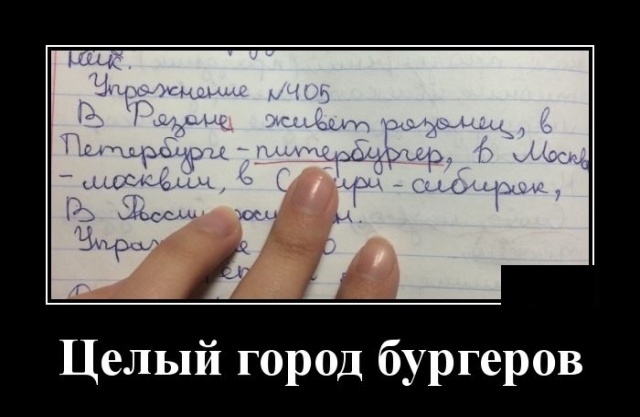 ник.
Упражнение №405
В Рязане живет рязанец, в
Петербурге - питербургер, в Москве
- москвич, в С ири - сибиряк,
В России н.
Упра е 0
Целый город бургеров